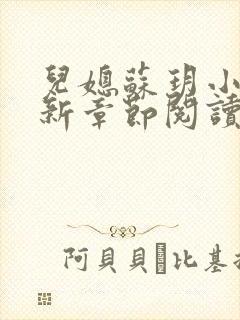 兒媳蘇玥小
新章節閱讀
阿貝貝 比基